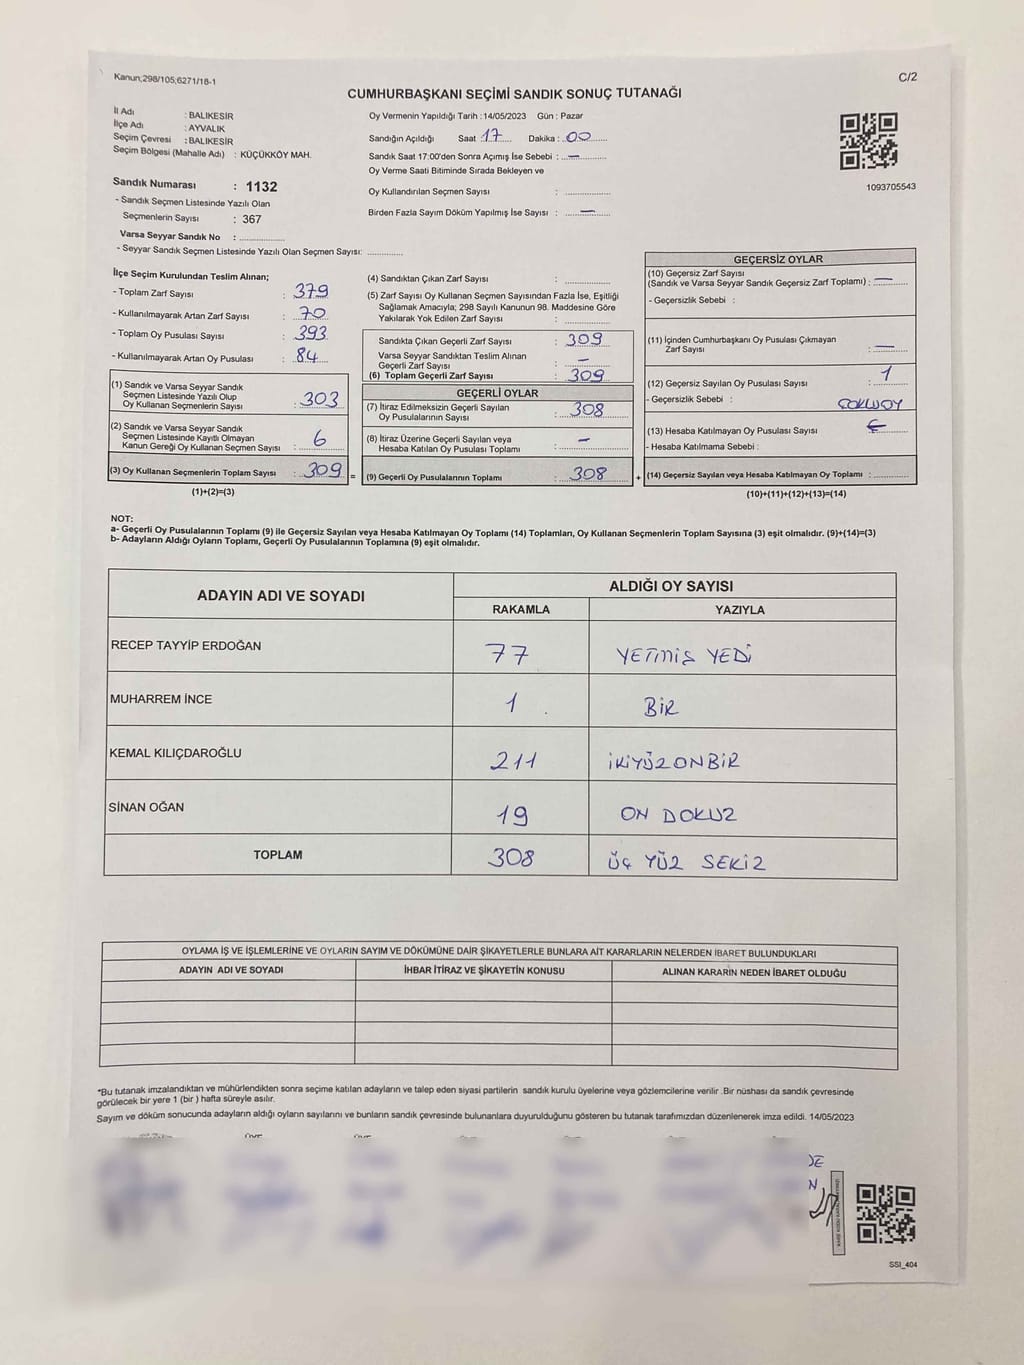 Kanun;298/105;6271/18-1
C/2
CUMHURBAŞKANI SEÇİMİ SANDIK SONUÇ TUTANAĞI
İl Adı : BALIKESİR
İlçe Adı : AYVALIK
Seçim Çevresi : BALIKESİR
Seçim Bölgesi (Mahalle Adı) : KÜÇÜKKÖY MAH.
Sandık Numarası : 1132
- Sandık Seçmen Listesinde Yazılı Olan
Seçmenlerin Sayısı : 367
Varsa Seyyar Sandık No : ...............
- Seyyar Sandık Seçmen Listesinde Yazılı Olan Seçmen Sayısı: ............
Oy Vermenin Yapıldığı Tarih : 14/05/2023 Gün : Pazar
Sandığın Açıldığı Saat 17 Dakika : 00
Sandık Saat 17:00'den Sonra Açımış İse Sebebi : —
Oy Verme Saati Bitiminde Sırada Bekleyen ve
Oy Kullandırılan Seçmen Sayısı : ...............
Birden Fazla Sayım Döküm Yapılmış İse Sayısı : —
1093705543
İlçe Seçim Kurulundan Teslim Alınan;
- Toplam Zarf Sayısı : 379
- Kullanılmayarak Artan Zarf Sayısı : 70
- Toplam Oy Pusulası Sayısı : 393
- Kullanılmayarak Artan Oy Pusulası : 84
(1) Sandık ve Varsa Seyyar Sandık
Seçmen Listesinde Yazılı Olup
Oy Kullanan Seçmenlerin Sayısı : 303
(2) Sandık ve Varsa Seyyar Sandık
Seçmen Listesinde Kayıtlı Olmayan
Kanun Gereği Oy Kullanan Seçmen Sayısı : 6
(3) Oy Kullanan Seçmenlerin Toplam Sayısı : 309 =
(1)+(2)=(3)
(4) Sandıktan Çıkan Zarf Sayısı : ...............
(5) Zarf Sayısı Oy Kullanan Seçmen Sayısından Fazla İse, Eşitliği
Sağlamak Amacıyla; 298 Sayılı Kanunun 98. Maddesine Göre
Yakılarak Yok Edilen Zarf Sayısı : ...............
Sandıkta Çıkan Geçerli Zarf Sayısı : 309
Varsa Seyyar Sandıktan Teslim Alınan
Geçerli Zarf Sayısı : —
(6) Toplam Geçerli Zarf Sayısı : 309
GEÇERLİ OYLAR
(7) İtiraz Edilmeksizin Geçerli Sayılan
Oy Pusulalarının Sayısı : 308
(8) İtiraz Üzerine Geçerli Sayılan veya
Hesaba Katılan Oy Pusulası Toplamı : —
(9) Geçerli Oy Pusulalarının Toplamı : 308 +
GEÇERSİZ OYLAR
(10) Geçersiz Zarf Sayısı
(Sandık ve Varsa Seyyar Sandık Geçersiz Zarf Toplamı) : —
- Geçersizlik Sebebi :
(11) İçinden Cumhurbaşkanı Oy Pusulası Çıkmayan
Zarf Sayısı : —
(12) Geçersiz Sayılan Oy Pusulası Sayısı : 1
- Geçersizlik Sebebi :
(13) Hesaba Katılmayan Oy Pusulası Sayısı :
- Hesaba Katılmama Sebebi :
(14) Geçersiz Sayılan veya Hesaba Katılmayan Oy Toplamı : ............
(10)+(11)+(12)+(13)=(14)
NOT:
a- Geçerli Oy Pusulalarının Toplamı (9) ile Geçersiz Sayılan veya Hesaba Katılmayan Oy Toplamı (14) Toplamları, Oy Kullanan Seçmenlerin Toplam Sayısına (3) eşit olmalıdır. (9)+(14)=(3)
b- Adayların Aldığı Oyların Toplamı, Geçerli Oy Pusulalarının Toplamına (9) eşit olmalıdır.
ADAYIN ADI VE SOYADI ALDIĞI OY SAYISI
RAKAMLA YAZIYLA
RECEP TAYYİP ERDOĞAN 77 YETMİŞ YEDİ
MUHARREM İNCE 1 BİR
KEMAL KILIÇDAROĞLU 211 İKİYÜZONBİR
SİNAN OĞAN 19 ON DOKUZ
TOPLAM 308 ÜÇ YÜZ SEKİZ
OYLAMA İŞ VE İŞLEMLERİNE VE OYLARIN SAYIM VE DÖKÜMÜNE DAİR ŞİKAYETLERLE BUNLARA AİT KARARLARIN NELERDEN İBARET BULUNDUKLARI
ADAYIN ADI VE SOYADI İHBAR İTİRAZ VE ŞİKAYETİN KONUSU ALINAN KARARIN NEDEN İBARET OLDUĞU
*Bu tutanak imzalandıktan ve mühürlendikten sonra seçime katılan adayların ve talep eden siyasi partilerin sandık kurulu üyelerine veya gözlemcilerine verilir .Bir nüshası da sandık çevresinde
görülecek bir yere 1 (bir ) hafta süreyle asılır.
Sayım ve döküm sonucunda adayların aldığı oyların sayılarını ve bunların sandık çevresinde bulunanlara duyurulduğunu gösteren bu tutanak tarafımızdan düzenlenerek imza edildi. 14/05/2023
SSI_404